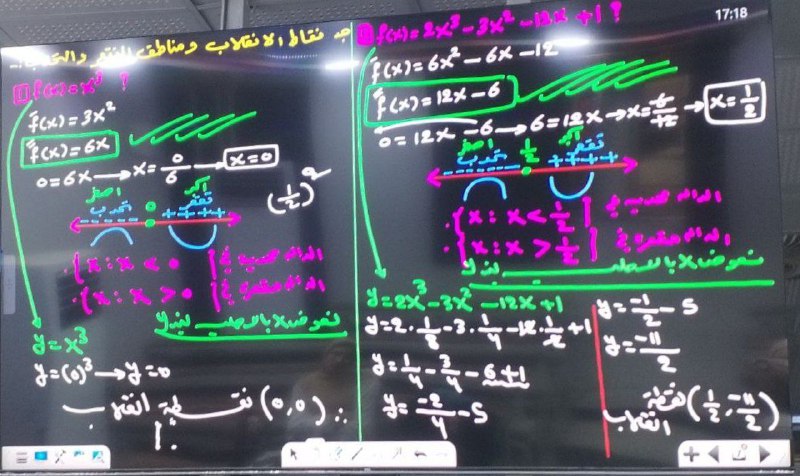 17:18
جد نقاط الانقلاب ومناطق التقعر والتحدب:
① f(x) = x³ ?
f̄(x) = 3x²
f̿(x) = 6x
0 = 6x → x = 0/6 → x = 0
أصغر أكبر
تحدب 0 تقعر
- - - - - - + + + +
(1/2)
{x : x < 0} الدالة محدبة في
{x : x > 0} الدالة مقعرة في
نعوض x بالاصلية لنجد y
y = x³
y = (0)³ → y = 0
∴ (0,0) نقطة انقلاب
② f(x) = 2x³ - 3x² - 12x + 1 ?
f̄(x) = 6x² - 6x - 12
f̿(x) = 12x - 6
0 = 12x - 6 → 6 = 12x → x = 6/12 → x = 1/2
أصغر أكبر
تحدب 1/2 تقعر
- - - - - - + + + +
{x : x < 1/2} الدالة محدبة في
{x : x > 1/2} الدالة مقعرة في
نعوض x بالاصلية لنجد y
y = 2x³ - 3x² - 12x + 1
y = 2 · 1/8 - 3 · 1/4 - 12 · 1/2 + 1
y = 1/4 - 3/4 - 6 + 1
y = -2/4 - 5
y = -1/2 - 5
y = -11/2
(1/2, -11/2) نقطة
انقلاب